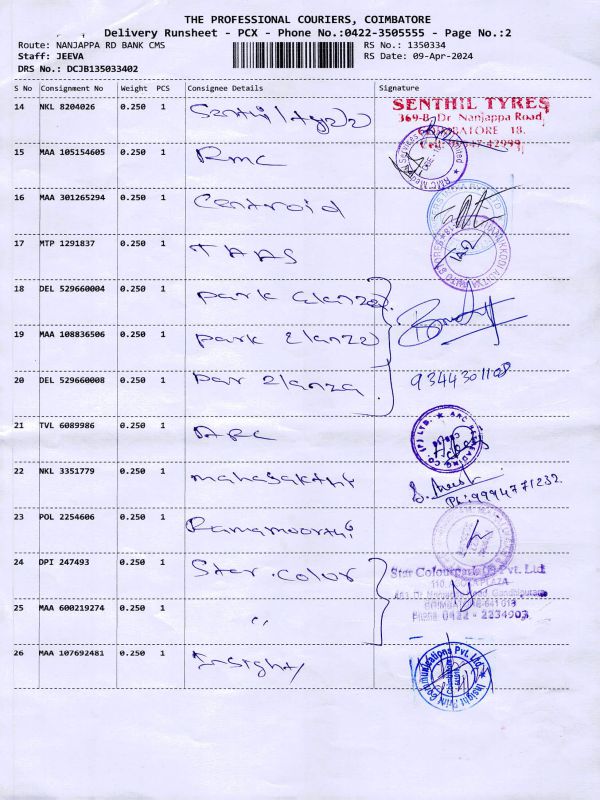 THE PROFESSIONAL COURIERS, COIMBATORE
Delivery Runsheet - PCX - Phone No.:0422-3505555 - Page No.:2
Route: NANJAPPA RD BANK CMS RS No.: 1350334
Staff: JEEVA RS Date: 09-Apr-2024
DRS No.: DCJB135033402
S No Consignment No Weight PCS Consignee Details Signature
14 NKL 8204026 0.250 1 Senthil tyres SENTHIL TYRES
369-B, Dr. Nanjappa Road,
COIMBATORE 18.
Cell: 42999
15 MAA 105154605 0.250 1 RMC
16 MAA 301265294 0.250 1 Centroid
17 MTP 1291837 0.250 1 TAAS
18 DEL 529660004 0.250 1 park elanza
19 MAA 108836506 0.250 1 park elanza
20 DEL 529660008 0.250 1 par elanza
21 TVL 6089986 0.250 1 ARC
22 NKL 3351779 0.250 1 mahasakthi
Ph: 9994771232
23 POL 2254606 0.250 1 Ramamoorthi
24 DPI 247493 0.250 1 Star.color Star Colourpark (I) Pvt. Ltd
110, PLAZA
Dr. Nanjappa Road, Gandhipuram
COIMBATORE-641 018
Phone 0422 - 2234903
25 MAA 600219274 0.250 1 "
26 MAA 107692481 0.250 1 Insight
Insight Print Communications Pvt. Ltd.